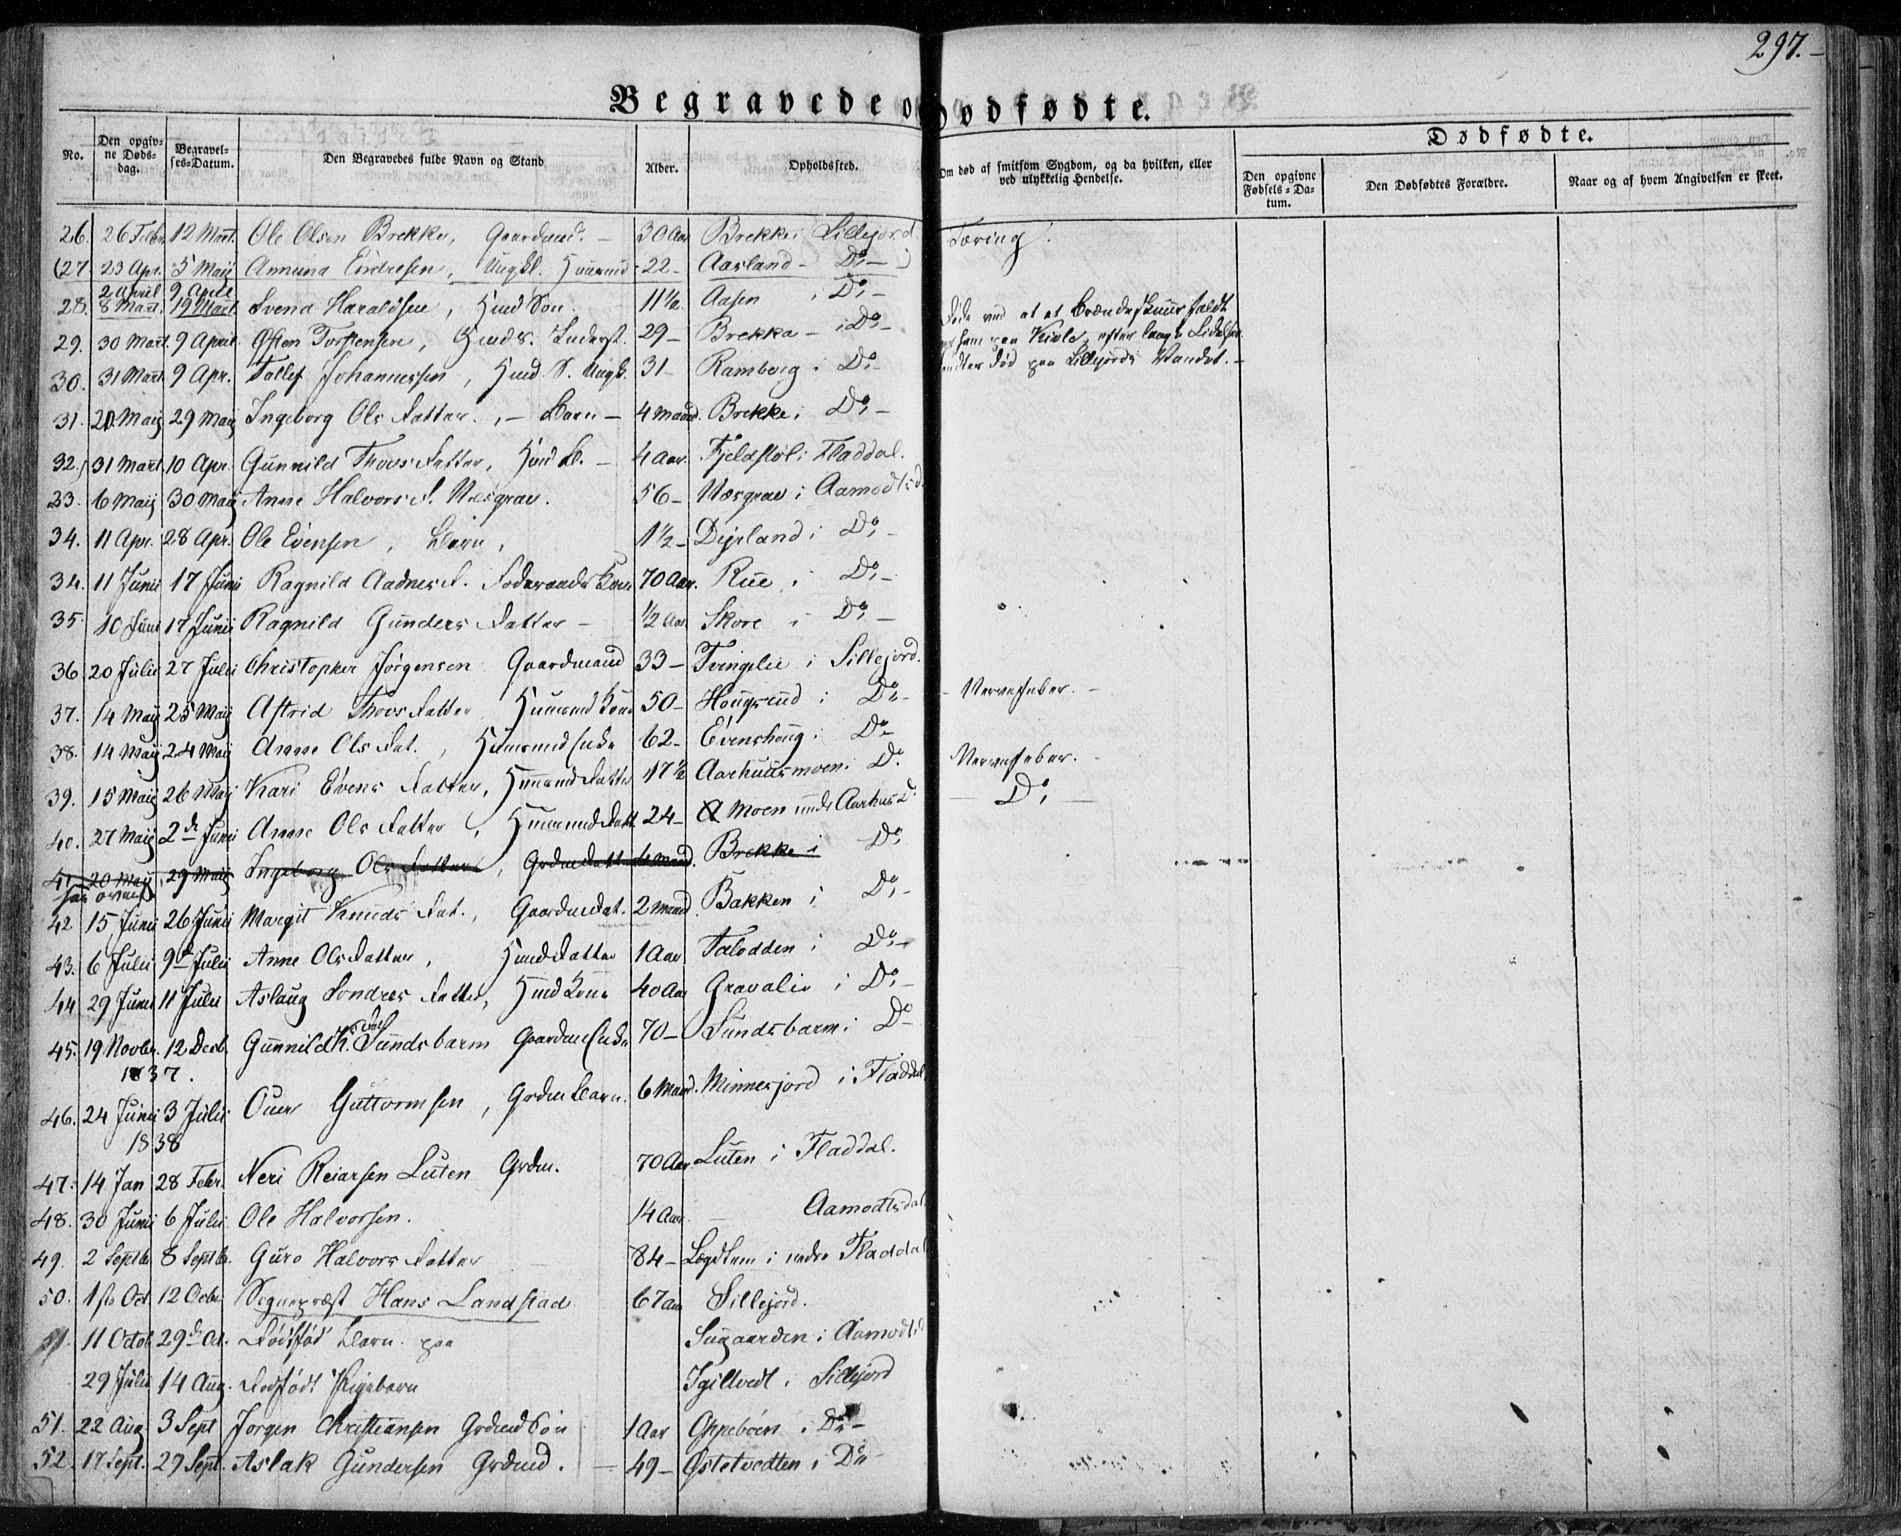 297.
Begravede o Dødfødte.
Dødfødte.
No. Den opgivne Dødsdag. Begravelses-Datum. Den Begravedes fulde Navn og Stand Alder. Opholdssted. Om død af smitsom Sygdom, og da hvilken, eller ved ulykkelig Hendelse. Den opgivne Fødsels-Datum. Den Dødfødtes Forældre. Naar og af hvem Angivelsen er skeet.
26. 26 Febr. 12 Mart. Ole Olsen Brekke, Gaardmd. – 30 Aar Brekke i Sillejord Tæring.
(27 23 Apr. 5 Maij Ammund Endresen, Ungkl. Huusmd - 22 - Aasland - Do - )
2 April 9 April
28. 8 Mart. 19 Mart Svend Haraldsen, Hmd Søn. 11½ Aasen i Do - Døde ved at et Brændeskuur faldt
29. 30 Mart 9 April Østen Torstensen, Hmd S. Inderst. 29 - Brekka - i Do - ham paa Kiole, efter langt Lidelse.
30. 31 Mart 9 Apr. Tollef Johannessen, Hmd S. Ungk. 31 - Ramberg i Do - død paa Sillejords Vandet. -
31. 20 Maij 29 Maij Ingeborg Ols Datter., - Barn - 4 Maand. Brekke i Do -
32. 31 Mart 10 Apr. Gunnild Thovs Datter, Hmd B. - 4 Aar. Fjeldstøl i Fladdal.
33. 6 Maij 30 Maij Anne Halvors D. Næsgrav. 56 - Næsgrav i Aamodtsd.
34. 11 Apr. 28 Apr. Ole Evensen, Barn, 1½ - Dyrland i Do -
34. 11 Junii 17 Junii Ragnild Aadnes D. Foderaads Kone 70 Aar. Rue i Do -
35. 10 Juni 17 Junii Ragnild Gunders Datter - ½ Aar Skore i Do -
36. 20 Julii 27 Julii Christopher Jørgensen Gaardmand 33 - Tvingelie i Sillejord.
37. 14 Maij 25 Maij Astrid Thovs Datter Huusmd Kone 50 - Hougrud i Do - - Nervefeber. -
38. 14 Maij 24 Maij Anne Ols Dat., Huusmd Enke 62 - Evenshaug i Do
39. 15 Maij 26 Maij Kari Evens Datter, Huusmd Datter 17½ Aarhuusmoen i Do Nervefeber. -
40. 27 Maij 2d Junii Anne Ols Datter, Huusmd Datt 24 - Moen under Aarhus Do - Do, -
41. 20 Maij 29 Maij Ingeborg Ols Datter, Grdm Datter 4 Maand. Brekke i Do
42 15 Junii 26 Junii Margit Knuds Dat., Gaardm Dat. 2 Maand. Bakken i Do -
43. 6 Julii 9d Julii Anne Ols Datter, Hmd Datter 1 Aar Talodden i Do -
44 29 Junii 11 Julii Aslaug Sondres Datter, Hmd Kone 40 Aar Gravalie i Do -
45. 19 Novbr. 12 Decb. Gunnild K. Dat Sundsbarm Gaardm Enke 70 - Sundsbarm i Do
1837.
46. 24 Junii 3 Julii Guttormsen, Grdm Barn. 6 Maand. Minnesjord i Fladdal
1838
47. 14 Jan 28 Febr. Neri Reiarsen Luten Grdm. 70 Aar Luten i Fladdal.
48. 30 Junii 6 Julii Ole Halvorsen. 14 Aar. Aamodtsdal
49. 2 Septb. 8 Septbr. Guro Halvors Datter 84 - Lægdlem i nedre Fladdal
50. 1ste Oct. 12 Octbr. Sognepræst Hans Landstad 67 Aar Sillejord.
51. 11 Octob 29d Oct. Dødfød Barn paa Sugaarden i Aamodtsd
29 Julii 14 Aug. Dødfødt Pigebarn Igiltvedt i Sillejord
51. 22 Aug. 3 Sept Jørgen Christiansen Grdmd Søn 1 Aar Oppebøen i Do -
52. 17 Sept. 29 Sept. Aslak Gundersen Grdmd. - 49 - Østetvedten i Do -